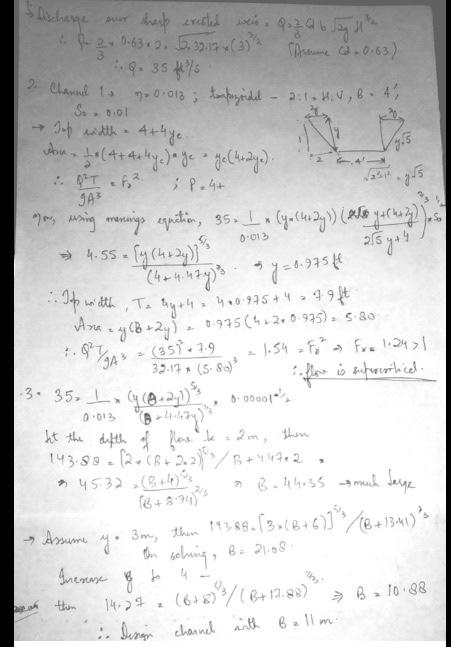 → Discharge over sharp crested weir = Q = 2/3 Cd b √2g H^3/2
∴ Q = 2/3 × 0.63 × 2 × √2×32.17 × (3)^3/2 (Assume Cd = 0.63)
∴ Q = 35 ft³/s
2. Channel 1 → n = 0.013 ; trapezoidal - 2:1 = H:V, B = 4',
S₀ = 0.01
→ Top width = 4 + 4yc
Area = 1/2 × (4+4+4yc) × yc = yc(4+2yc).
∴ Q²T/gA³ = Fr² ; P = 4+
2y 2y
1 2 y 4' y√5
= y√5
Now, using mannings equation, 35 = 1/0.013 × (y×(4+2y)) (y(4+2y)/2√5 y+4)^2/3 × S₀^1/2
⇒ 4.55 = [y(4+2y)]^5/3/(4+4.47y)^2/3 ⇒ y = 0.975 ft
∴ Top width, T = 4y+4 = 4×0.975+4 = 7.9 ft
Area = y(B+2y) = 0.975(4+2×0.975) = 5.80
∴ Q²T/gA³ = (35)²×7.9/32.17×(5.80)³ = 1.54 = Fr² ⇒ Fr = 1.24 > 1
∴ flow is supercritical.
3. 35 = 1/0.013 × (y(B+2y))^5/3/(B+4.47y)^2/3 × 0.00001^1/2
let the depth of flow be = 2m, then
143.88 = [2×(B+2×2)]^5/3/B+4.47×2
⇒ 45.32 = (B+4)^5/3/(B+8.94)^2/3 ⇒ B = 44.35 → much large
→ Assume y = 3m, then 143.88 = [3×(B+6)]^5/3/(B+13.41)^2/3
On solving, B = 21.08.
Increase y to 4 -
then 14.27 = (B+8)^5/3/(B+17.88)^2/3 ⇒ B = 10.88
∴ Design channel with B = 11 m.